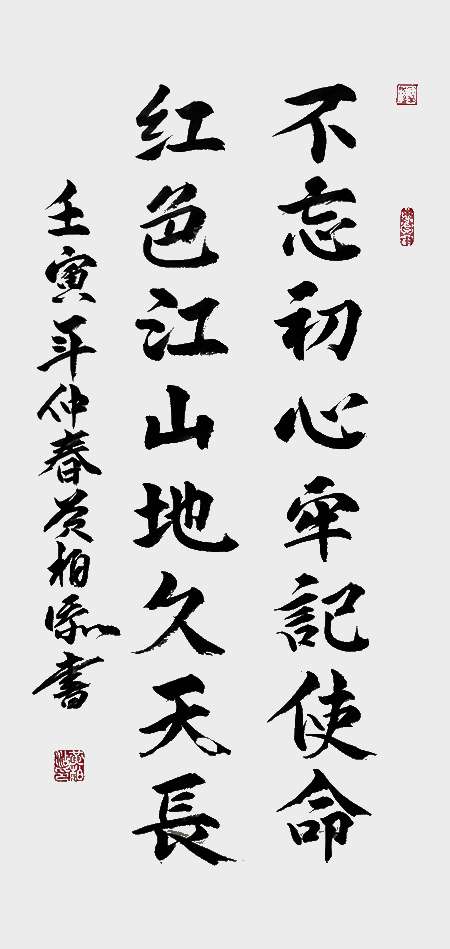 不忘初心牢記使命
红色江山地久天長
壬寅年仲春黄柏添書